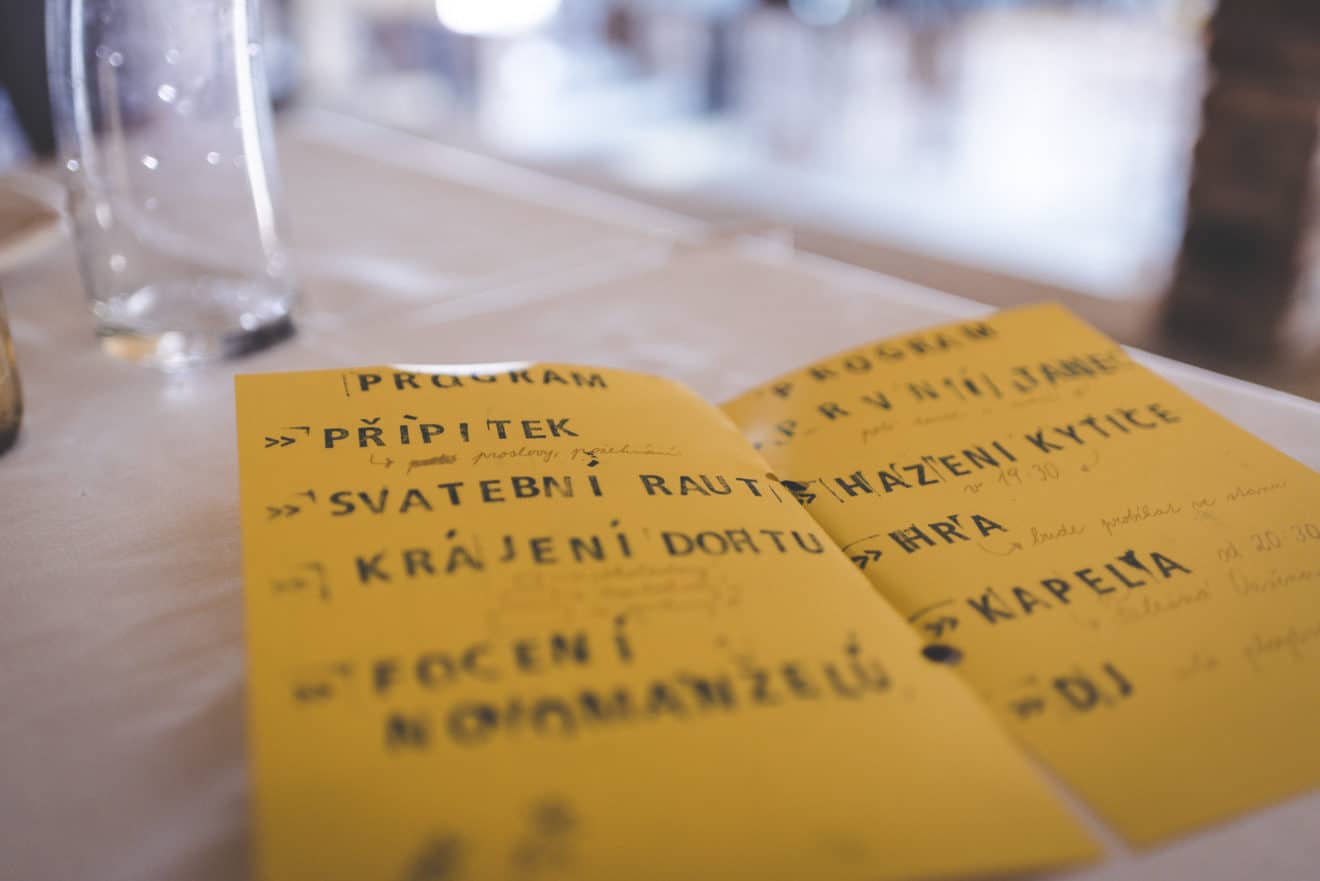 PROGRAM
» PŘÍPITEK
proslovy, požehnání
» SVATEBNÍ RAUT
» KRÁJENÍ DORTU
» FOCENÍ
NOVOMANŽELŮ
PROGRAM
PRVNÍ TANEC
» HÁZENÍ KYTICE
v 19:30
» HRA
bude probíhat ve stanu
» KAPELA
od 20:30
» DJ